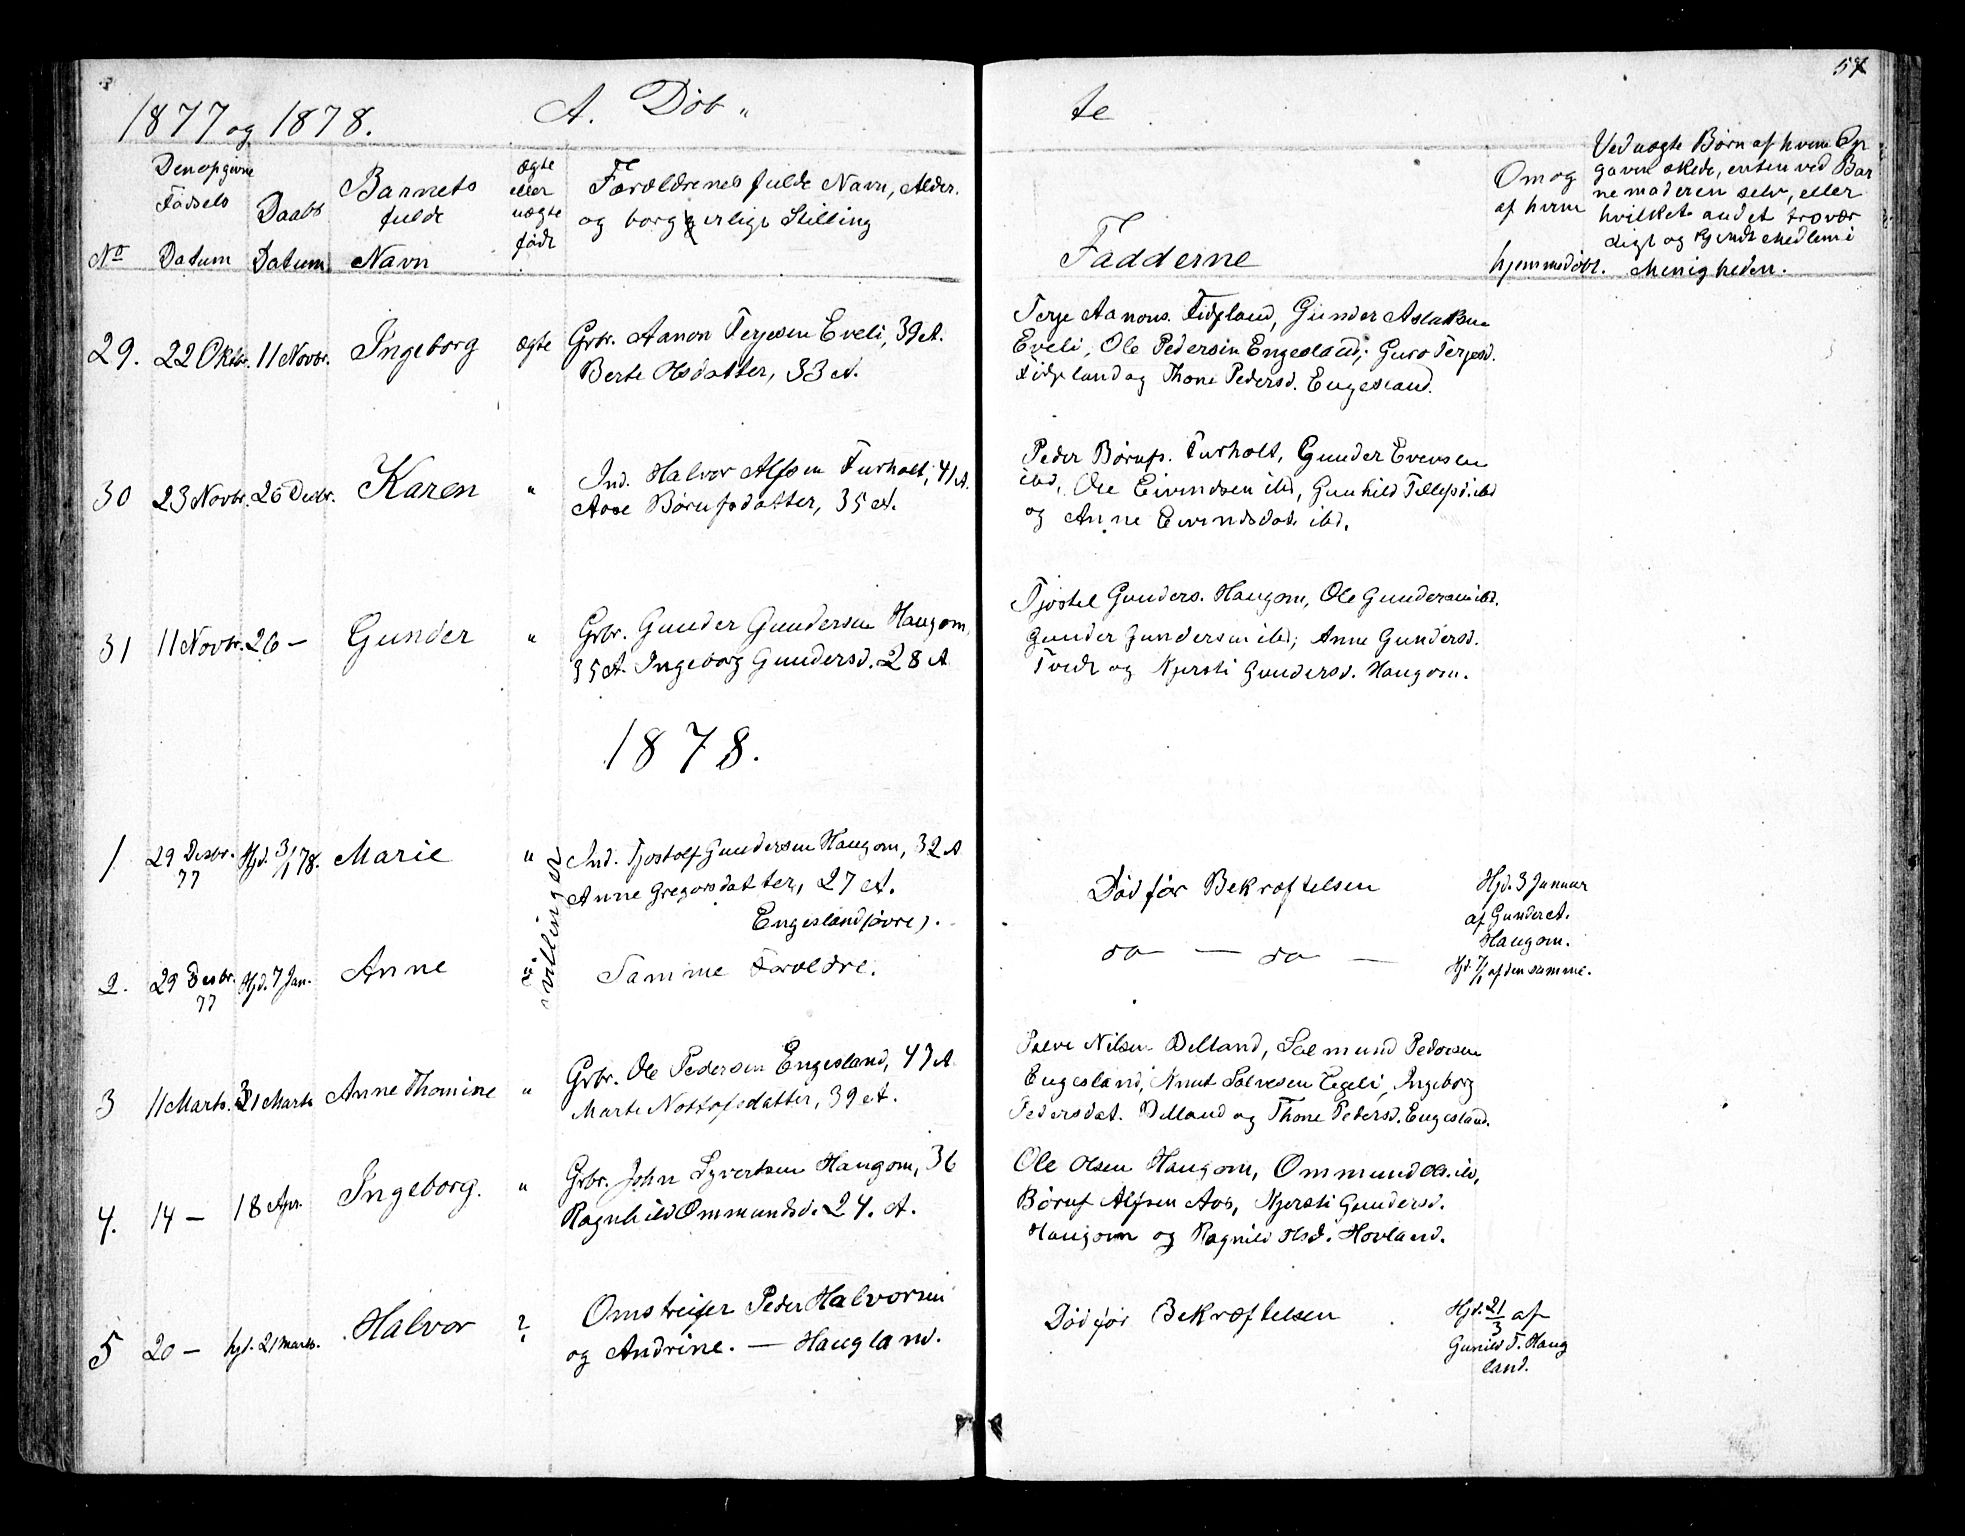 1877 og 1878.
A. Döb„
te
Den opgivne
Fødsels
Datum
Daabs
Datum
Barnets
fulde
Navn
ægte
eller
uægte
født
Forældrenes fulde Navn, Alder.
og borgerlige Stilling
No
Fadderne
Om og
af hvem
hjemmedøbt.
Ved uægte Børn af hvem Op
gaven skede, enten ved Bar
nemoderen selv, eller
hvilket andet trovær
digt og kjendt Medlem i
Menigheden.
29. 22 Oktbr. 11 Novbr. Ingeborg ægte Grbr. Aanon Terjesen Eveli, 39 A.
Berte Olsdatter, 33 A.
Terje Aanons. Fidjeland, Gunder Aslaksen
Eveli, Ole Pedersen Engesland; Guro Terjesd.
Fidjeland og Thone Pedersd. Engesland.
30 23 Novbr. 26 Desbr. Karen „ Ind. Halvor Alfsen Furholt, 41 A.
Aase Børufsdatter, 35 A.
Peder Børufs. Furholt, Gunder Evensen
ibd, Ole Eivindsen ibd, Gunhild Tellefsd. ibd
og Anne Eivindsdat. ibd.
31 11 Novbr. 26 — Gunder „ Grbr. Gunder Gundersen Haugom,
35 A. Ingeborg Gundersd. 28 A
Tjostel Gunders. Haugom, Ole Gundersen ibd.
Gunder Gundersen ibd; Anne Gundersd.
Tvedt og Kjersti Gundersd. Haugom.
1878.
1 29 Desbr. 77 Hjd. 3/1 78. Marie „ Ind. Tjostolf Gundersen Haugom, 32 A
Anne Gregorsdatter, 27 A.
Engesland (øvre).
Tvillinger
Död för Bekræftelsen
Hjd. 3 Januar
af Gunder A.
Haugom.
2. 29 Desbr. 77 Hjd. 7 Jan. Anne „ Samme Forældre.
do — do —
Hjd. 7/1 af den samme.
3 11 Marts. 31 Marts Anne Thomine „ Grbr. Ole Pedersen Engesland, 43 A
Marte Nottofsdatter, 39 A.
Salve Nilsen Belland, Salmund Pedersen
Engesland, Knut Salvesen Egeli, Ingeborg
Pedersdat. Belland og Thone Pedersd. Engesland.
4. 14 — 18 Apr. Ingeborg. „ Grbr. John Syvertsen Haugom, 36
Ragnhild Ommundsd. 24. A.
Ole Olsen Haugom, Ommund Ols. ibd,
Børuf Alfsen Aas, Kjersti Gundersd.
Haugom og Ragnild Olsd. Hovland.
5 20 — hjd. 21 Marts. Halvor ? Omstreifer Peder Halvorsen
og Andrine. — Haugland.
Död för Bekræftelsen
Hjd. 21/3 af
Gunild T. Haug
land.